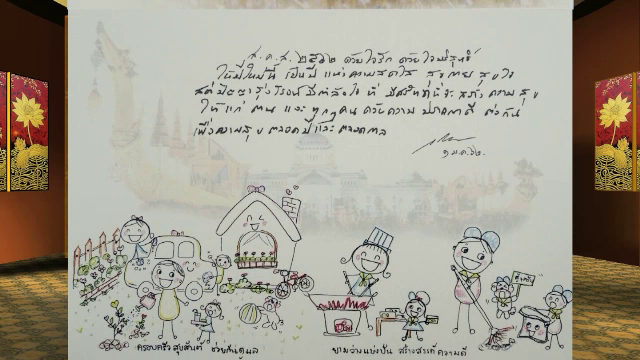 ส.ค.ส. ๒๕๖๒ ด้วยใจรัก ด้วยใจบริสุทธิ์
ให้ปีใหม่นี้ เป็นปี แห่งความสดใส สุขกาย สุขใจ
สติปัญญารุ่งโรจน์ มีกำลังใจ ที่จะสร้าง ความสุข
ให้แก่ ตน และ ทุกๆคน ด้วยความ ปรารถดี ต่อกัน
เพื่อความสุข ตลอดปีและตลอดกาล
๑ ม.ค. ๖๒.
ครอบครัว สุขสันต์ ช่วยกันดูแล
ยามว่างแบ่งปัน สร้างสามัคคี ความดี